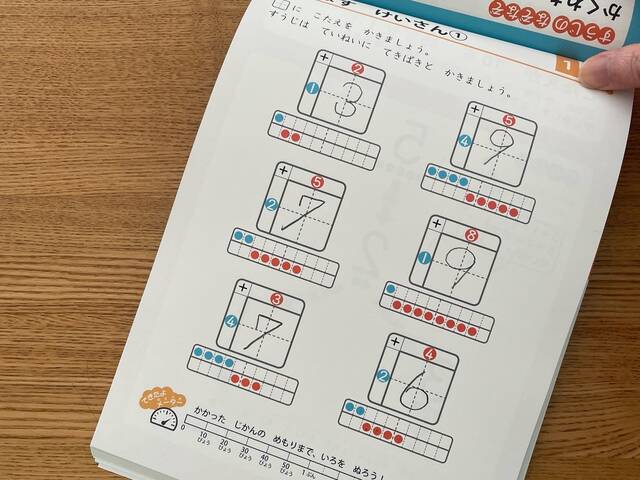 すうじの なぞなぞ
けいさん①
に こたえを かきましょう。
すうじは ていねいに てきぱきと かきましょう。
1
+ 2
1 3
+ 5
4 9
+ 5
2 7
+ 8
1 9
+ 3
4 7
+ 4
2 6
できたよ
かかった じかんの めもりまで、いろを ぬろう！
0 10びょう 20びょう 30びょう 40びょう 50びょう 1ぷん